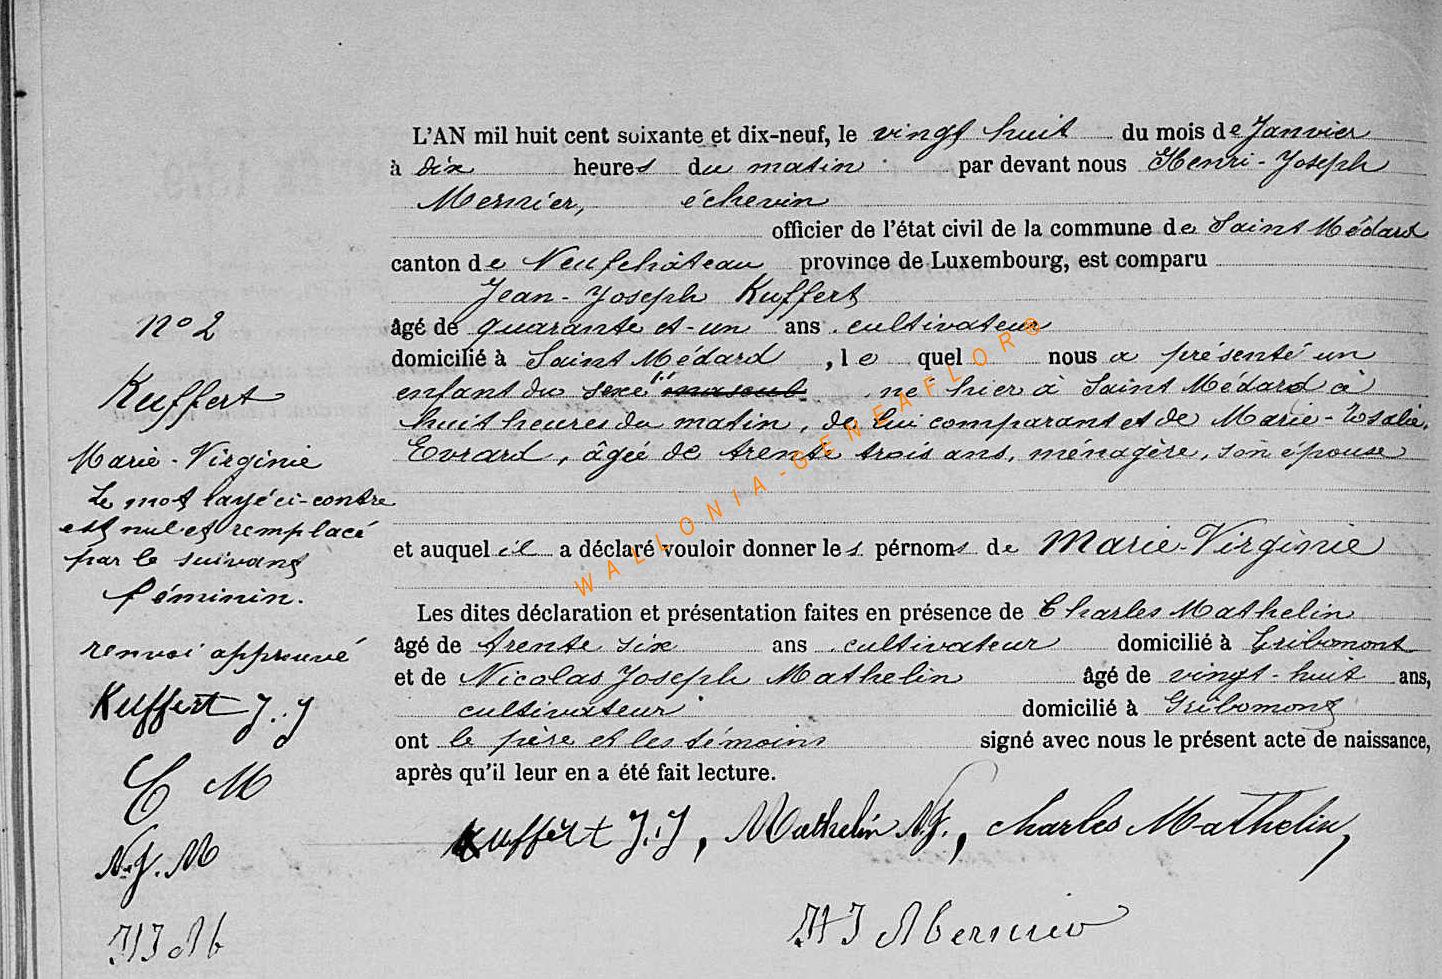 L'AN mil huit cent soixante et dix-neuf, le vingt huit du mois de Janvier
à dix heures du matin par devant nous Henri-Joseph
Mernier, échevin
officier de l'état civil de la commune de Saint Médard
canton de Neufchâteau province de Luxembourg, est comparu
Jean-Joseph Kuffert
âgé de quarante et-un ans cultivateur
domicilié à Saint Médard, le quel nous a présenté un
enfant du sexe mascul né hier à Saint Médard à
huit heures du matin, de lui comparant et de Marie-Rosalie
Evrard, âgée de trente trois ans, ménagère, son épouse
et auquel il a déclaré vouloir donner les pérnoms de Marie-Virginie
Les dites déclaration et présentation faites en présence de Charles Mathelin
âgé de trente six ans cultivateur domicilié à Gribomont
et de Nicolas Joseph Mathelin âgé de vingt-huit ans,
cultivateur domicilié à Gribomont
ont le père et les témoins signé avec nous le présent acte de naissance,
après qu'il leur en a été fait lecture.
Kuffert J.J, Mathelin N.J., Charles Mathelin,
HJ Mernier
no 2
Kuffert
Marie-Virginie
Le mot rayé ci-contre
est nul et remplacé
par le suivant
féminin.
renvoi approuvé
Kuffert J.J
C M
N.J.M
HJ M
WALLONIA-GENEAFLOR®